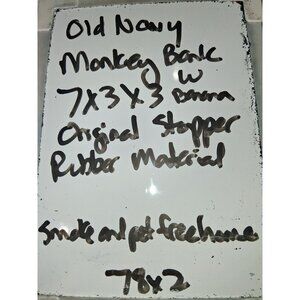 Old Navy
Monkey Bank
W
7x3x3 Banana
Original Stopper
Rubber Material
Smoke and pet free home
78x2